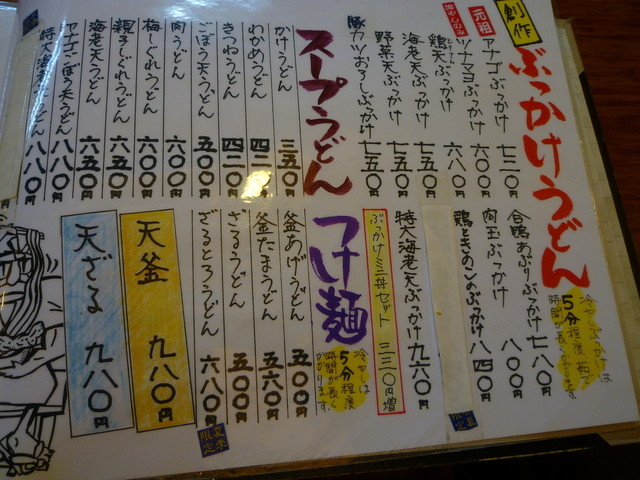 創作
ぶっかけうどん
元祖
アナゴぶっかけ 七二〇円
ツナマヨぶっかけ 六〇〇円
冷やしのみ
鶏天ぶっかけ 六八〇円
海老天ぶっかけ 七五〇円
野菜天ぶっかけ 七五〇円
豚カツおろしぶっかけ 七五〇円
冷やしぶっかけは
5分程度
時間が長くかかります。
合鴨あぶりぶっかけ 七八〇円
肉玉ぶっかけ 八〇〇円
鶏ときのこのぶっかけ 八四〇円
特大海老天ぶっかけ 九六〇円
ぶっかけミニ丼セット 三三〇円増
スープうどん
かけうどん 三五〇円
わかめうどん 四二〇円
きつねうどん 四二〇円
ごぼう天うどん 五〇〇円
肉うどん 六〇〇円
梅しぐれうどん 六〇〇円
親子しぐれうどん 六五〇円
海老天うどん 六五〇円
アナゴごぼう天うどん 八八〇円
特大海老天うどん 八八〇円
つけ麺
冷やしは
5分程度
時間が長く
かかります。
釜あげうどん 五〇〇円
釜たまうどん 五六〇円
ざるうどん 五〇〇円
ざるとろうどん 六八〇円
夏季限定
天釜 九八〇円
天ざる 九八〇円